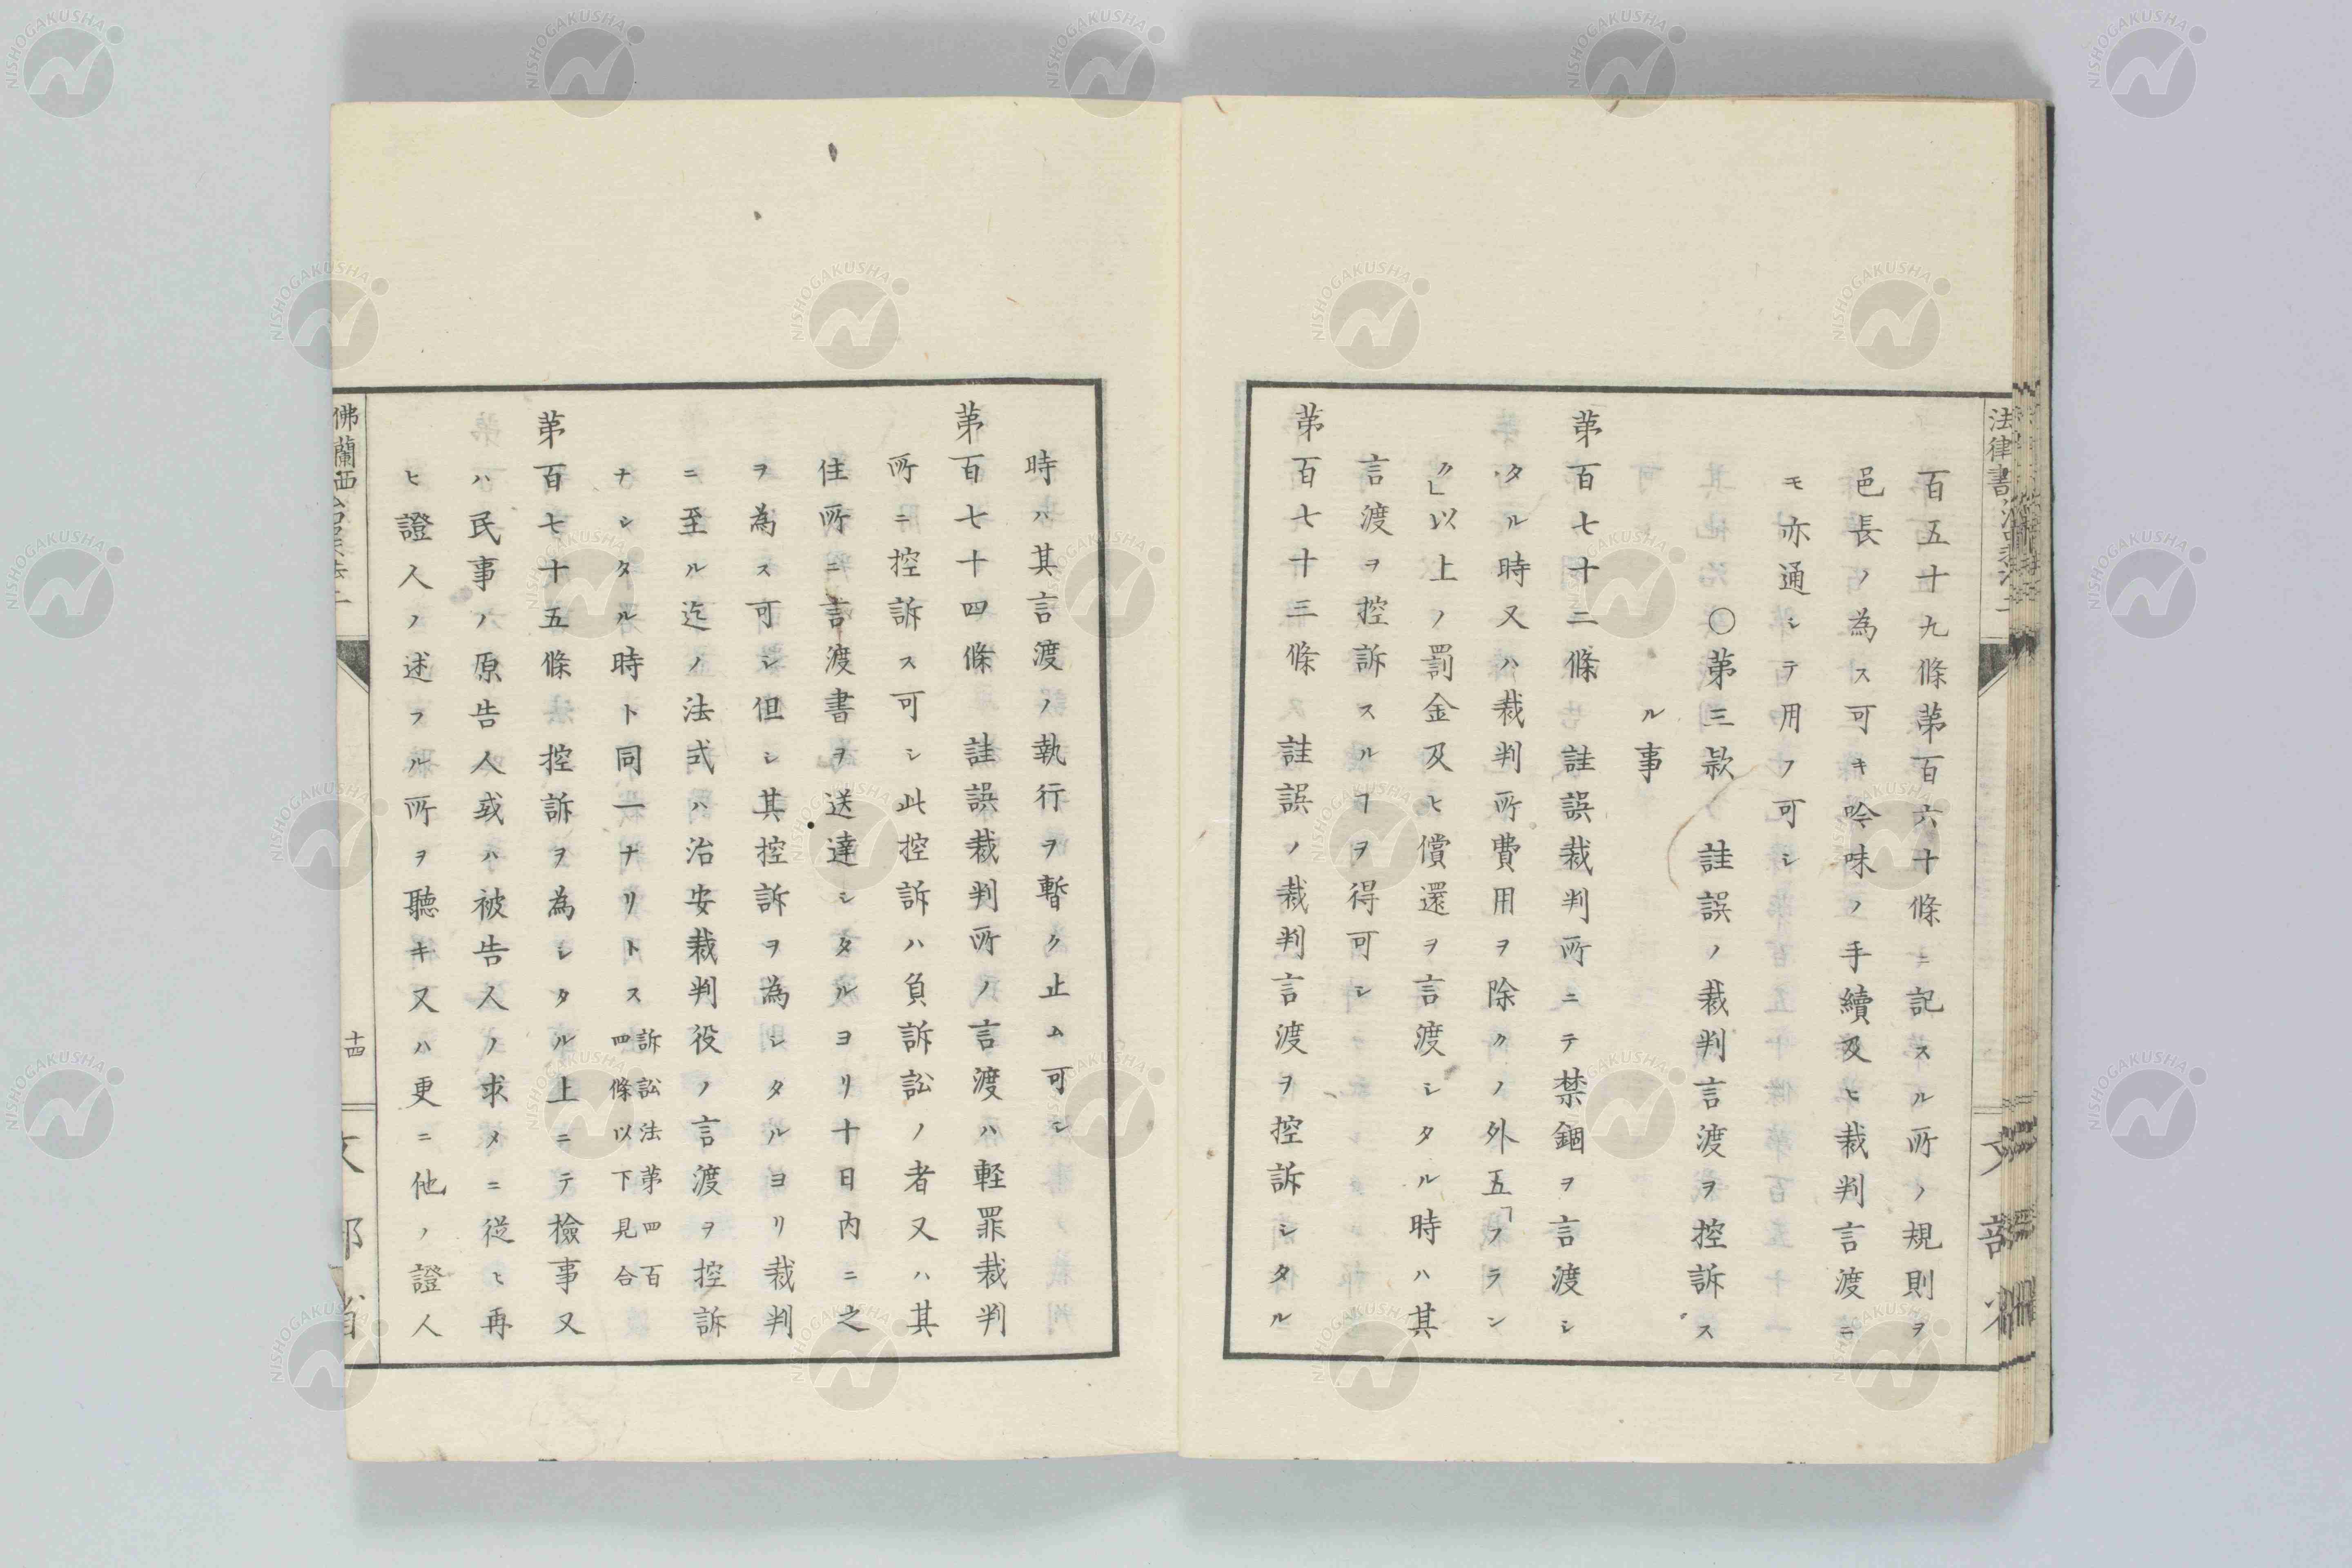 百五十九條第百六十條ニ記スル所ノ規則ヲ
邑長ノ為ス可キ吟味ノ手續及ヒ裁判言渡ニ
モ亦通シテ用フ可シ
○第三款 註誤ノ裁判言渡ヲ控訴ス
ル事
第百七十二條 註誤裁判所ニテ禁錮ヲ言渡シ
タル時又ハ裁判所費用ヲ除クノ外五「フラン
ク」以上ノ罰金及ヒ償還ヲ言渡シタル時ハ其
言渡ヲ控訴スルヿヲ得可シ
第百七十三條 註誤ノ裁判言渡ヲ控訴シタル
時ハ其言渡ノ執行ヲ暫ク止ム可シ
第百七十四條 註誤裁判所ノ言渡ハ軽罪裁判
所ニ控訴ス可シ此控訴ハ負訴訟ノ者又ハ其
住所ニ言渡書ヲ送達シタルヨリ十日内ニ之
ヲ為ス可シ但シ其控訴ヲ為シタルヨリ裁判
ニ至ル迄ノ法式ハ治安裁判役ノ言渡ヲ控訴
ナシタル時ト同一ナリトス 訴訟法第四百
四條以下見合
第百七十五條 控訴ヲ為シタル上ニテ檢事又
ハ民事ノ原告人或ハ被告人ノ求メニ從ヒ再
ヒ證人ノ述フル所ヲ聽キ又ハ更ニ他ノ證人
佛蘭西
十四
文部省
法律書
文部省
NISHOGAKUSHA